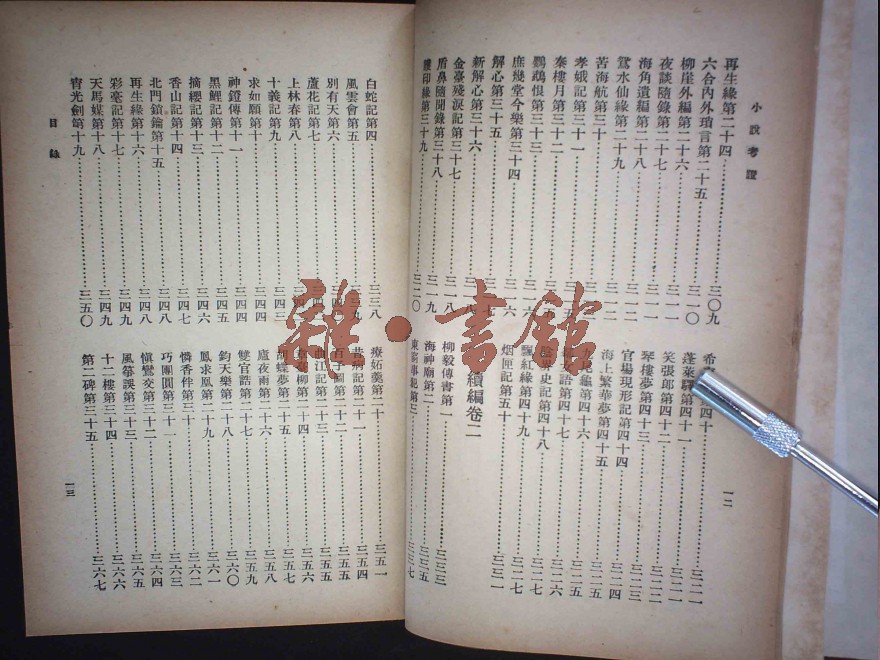 小說考證
再生緣第二十四 三〇九
六合內外瑣言第二十五 三一〇
柳崖外編第二十六 三一一
夜談隨錄第二十七 三一一
海角遺編第二十八 三一二
鴛水仙緣第二十九 三一二
苦海航第三十
孝娥記第三十一
秦樓月第三十二
鸚鵡恨第三十三
庶幾堂今樂第三十四
解心第三十五
新解心第三十六
金臺殘淚記第三十七 三一八
盾鼻隨聞錄第三十八 三一九
印緣第三十九 三二〇
希 四十 三二一
蓬萊驛第四十一 三二一
笑張郎第四十二 三二二
琴樓夢第四十三 三二三
官場現形記第四十四 三二四
海上繁華夢第四十五 三二五
尾龜第四十六 三二五
語第四十七 三二六
史記第四十八 三二七
飄紅緣第四十九 三二七
烟匣記第五十 三三一
續編卷二
柳毅傳書第一 三三三
海神廟第二 三三五
東窗事犯第三 三三七
一二
白蛇記第四 三三八
風雲會第五 三三九
別有天第六
蘆花記第七
上林春第八
十義記第九 三四三
求如願第十 三四四
神鐙傳第十一 三四四
黑鯉記第十二 三四五
摘纓記第十三 三四六
香山記第十四 三四七
北門鎖鑰第十五 三四八
再生緣第十六 三四八
彩毫記第十七 三四九
天馬媒第十八 三四九
宵光劍第十九 三五〇
療妬羹第二十 三五一
病記第二十一 三五四
百子圖第二十二 三五五
曲江記第二十三 三五五
柳第二十四 三五六
蝴蝶夢第二十五 三五七
廬夜雨第二十六 三五八
雙官誥第二十七 三五九
鈞天樂第二十八 三六〇
鳳求凰第二十九 三六一
憐香伴第三十 三六二
巧團圓第三十一 三六三
慎鸞交第三十二 三六四
風箏誤第三十三 三六五
十二樓第三十四 三六六
第二碑第三十五 三六七
目錄
一三
雜·書館